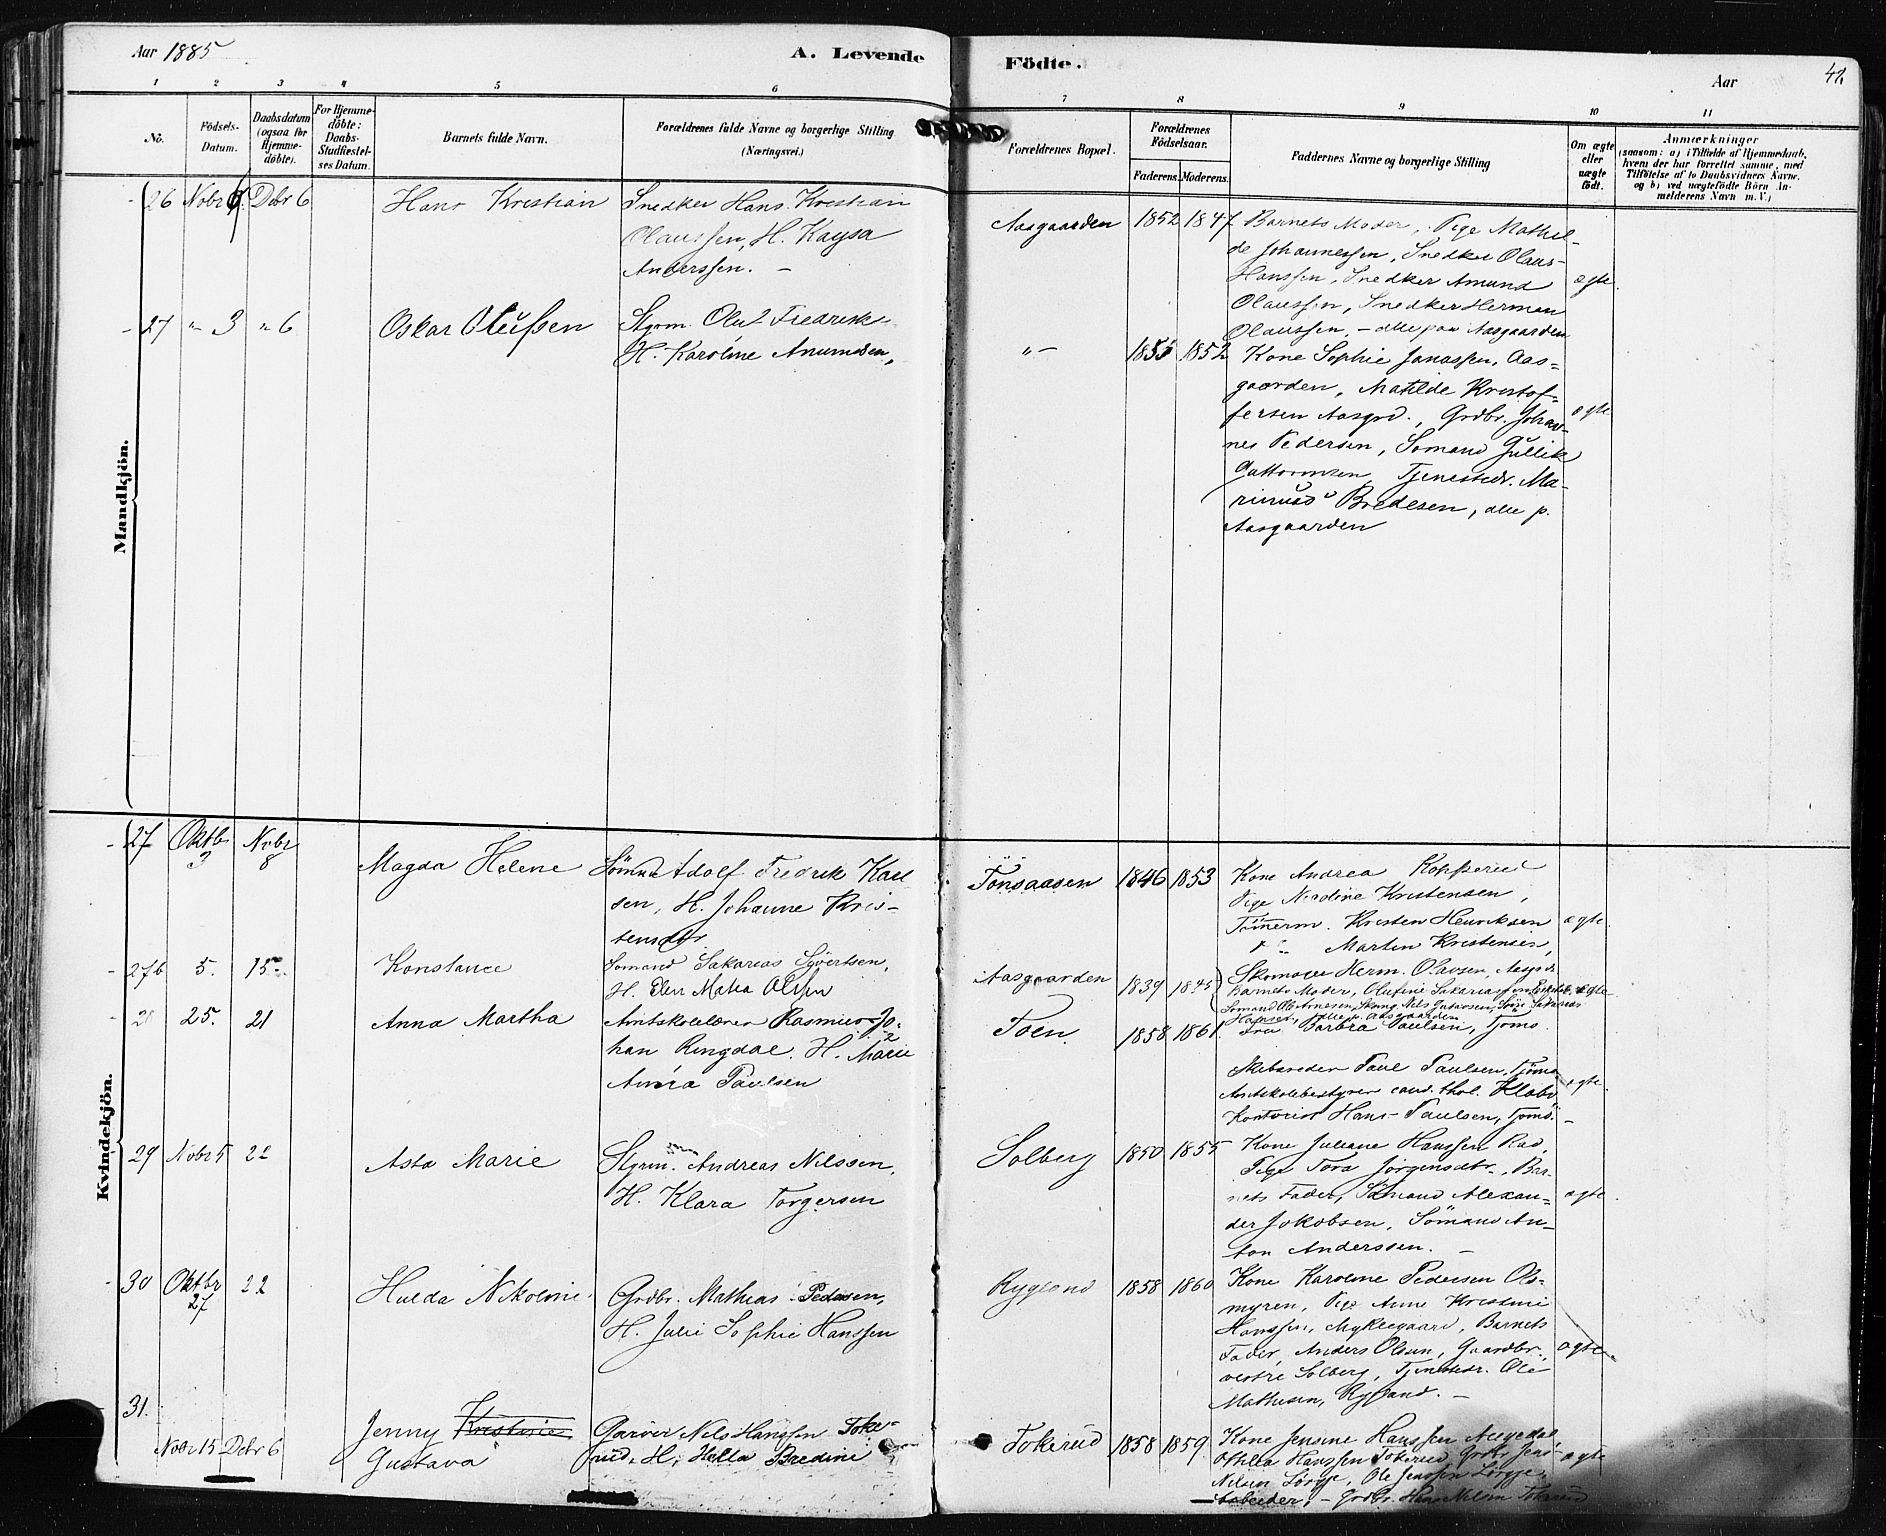 Aar 1885
A. Levende
Födte.
Aar
42
1 2 3 4 5 6 7 8 9 10 11
No.
Födsels-
Datum.
Daabsdatum
(ogsaa for
Hjemme-
döbte).
For Hjemme-
döbte:
Daabs-
Stadfæstel-
ses Datum.
Barnets fulde Navn.
Forældrenes fulde Navne og borgerlige Stilling
(Næringsvei.)
Forældrenes Bopæl.
Forældrenes
Födselsaar.
Faderens. Moderens.
Faddernes Navne og borgerlige Stilling
Om ægte
eller
uægte
födt.
Anmærkninger
(saasom: a) i Tilfælde af Hjemmedaab,
hvem der har forrettet samme, med
Tilföielse af to Daabsvidners Navne.
og b) ved uægtefödte Börn An-
melderens Navn m. V.)
Mandkjön.
26 Nobr Debr 6 Hans Kristian Snedker Hans Kristian
Olaussen, H. Kaysa
Anderssen. —
Aasgaarden 1852 1847 Barnets Moder, Pige Mathil-
de Johannessen, Snedker Olaus
Hanssen, Snedker Amund ægte.
Olaussen, Snedker Herman
Olaussen, — alle paa Aasgaarden
27 " 3 " 6 Oskar Olufsen Styrm. Oluf Fredrik-
H. Karoline Anundsen,
" — 1855 1852 Kone Sophie Jonassen, Aas-
gaarden, Matilde Kristof-
fersen Aasgrd., Grdbr. Johan- ægte
nes Pedersen, Sömand Gullik
Guttormsen, Tjenestedr. Ma-
rinus Bredesen, alle p.
Aasgaarden
Kvindekjön.
27 Oktbr 3 Nobr 8 Magda Helene Sömand Adolf Fredrik Karl
sen, H. Johanne Kris-
tensdtr.
Tönsaasen 1846 1853 Kone Andrea
Pige Nardine Kristensen,
Tömerm. Kristen Henriksen ægte
Martin Kristensen,
27b 5. 15 Konstance Somand Sakarias Syvertsen,
H. Elen Maria Olsen
Aasgaarden 1839 1845 Skomager Herm. Olavsen, Aasgrd.
Barnets Moder, Olufine Sakariassen ægte
28 25. 21 Anna Martha Amtskolelærer Rasmus Jo-
han Ringdal. H. Marie
Amóra Paulsen
Toen. 1858 1861 Fru Barbra Paulsen, Tjömö.
Skibsreder Paul Paulsen, Tjömö ægte.
Amtskolebestyrer cand. theol. Klobö
Kontorist Hans Paulsen, Tjömö. —
29 Nobr 5 22 Asta Marie Styrm. Andreas Nilssen,
H. Klara Torgersen
Solberg 1850 1855 Kone Juliane Hanssen Rød,
Pige Tora Jörgensdtr., Bar-
nets Fader, Sömand Alexan- ægte.
der Jokobsen, Sömand An-
ton Anderssen. —
30 Oktbr 27 22 Hulda Nikoline Grdbr. Mathias Pedersen,
H. Julie Sophie Hanssen
Rygland 1858 1860 Kone Karoline Pedersen Ols-
myren, Pige Anne Kristine
Hanssen, Myklegaard, Barnets
Fader, Anders Olsen, Gaardbr., ægte.
vestre Solberg, Tjenestedr. Ole
Mathisen, Rygland. —
31. Nobr 15 Debr 6 Jenny Kristine
Gustava
Garver Nils Hanssen Toke-
rud, H. Hella Bredine
Tokerud 1858 1859 Kone Jensine Hanssen
Othilla Hanssen Tokerud, Grdbr. Jens ægte
Nilsen Lörge, Ole Jenssen Lörge,
Arbeider, — Grdbr. Hans Nilsen Tokerud